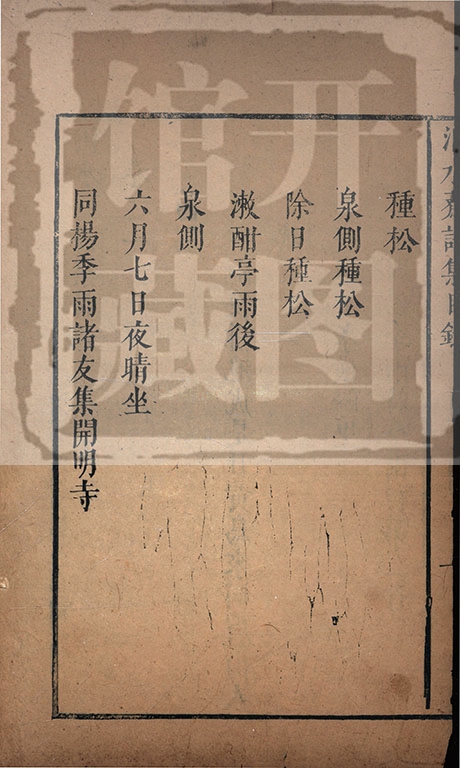 種松
泉側種松
除日種松
漱酣亭雨後
泉側
六月七日夜晴坐
同楊季雨諸友集開明寺
开图馆藏